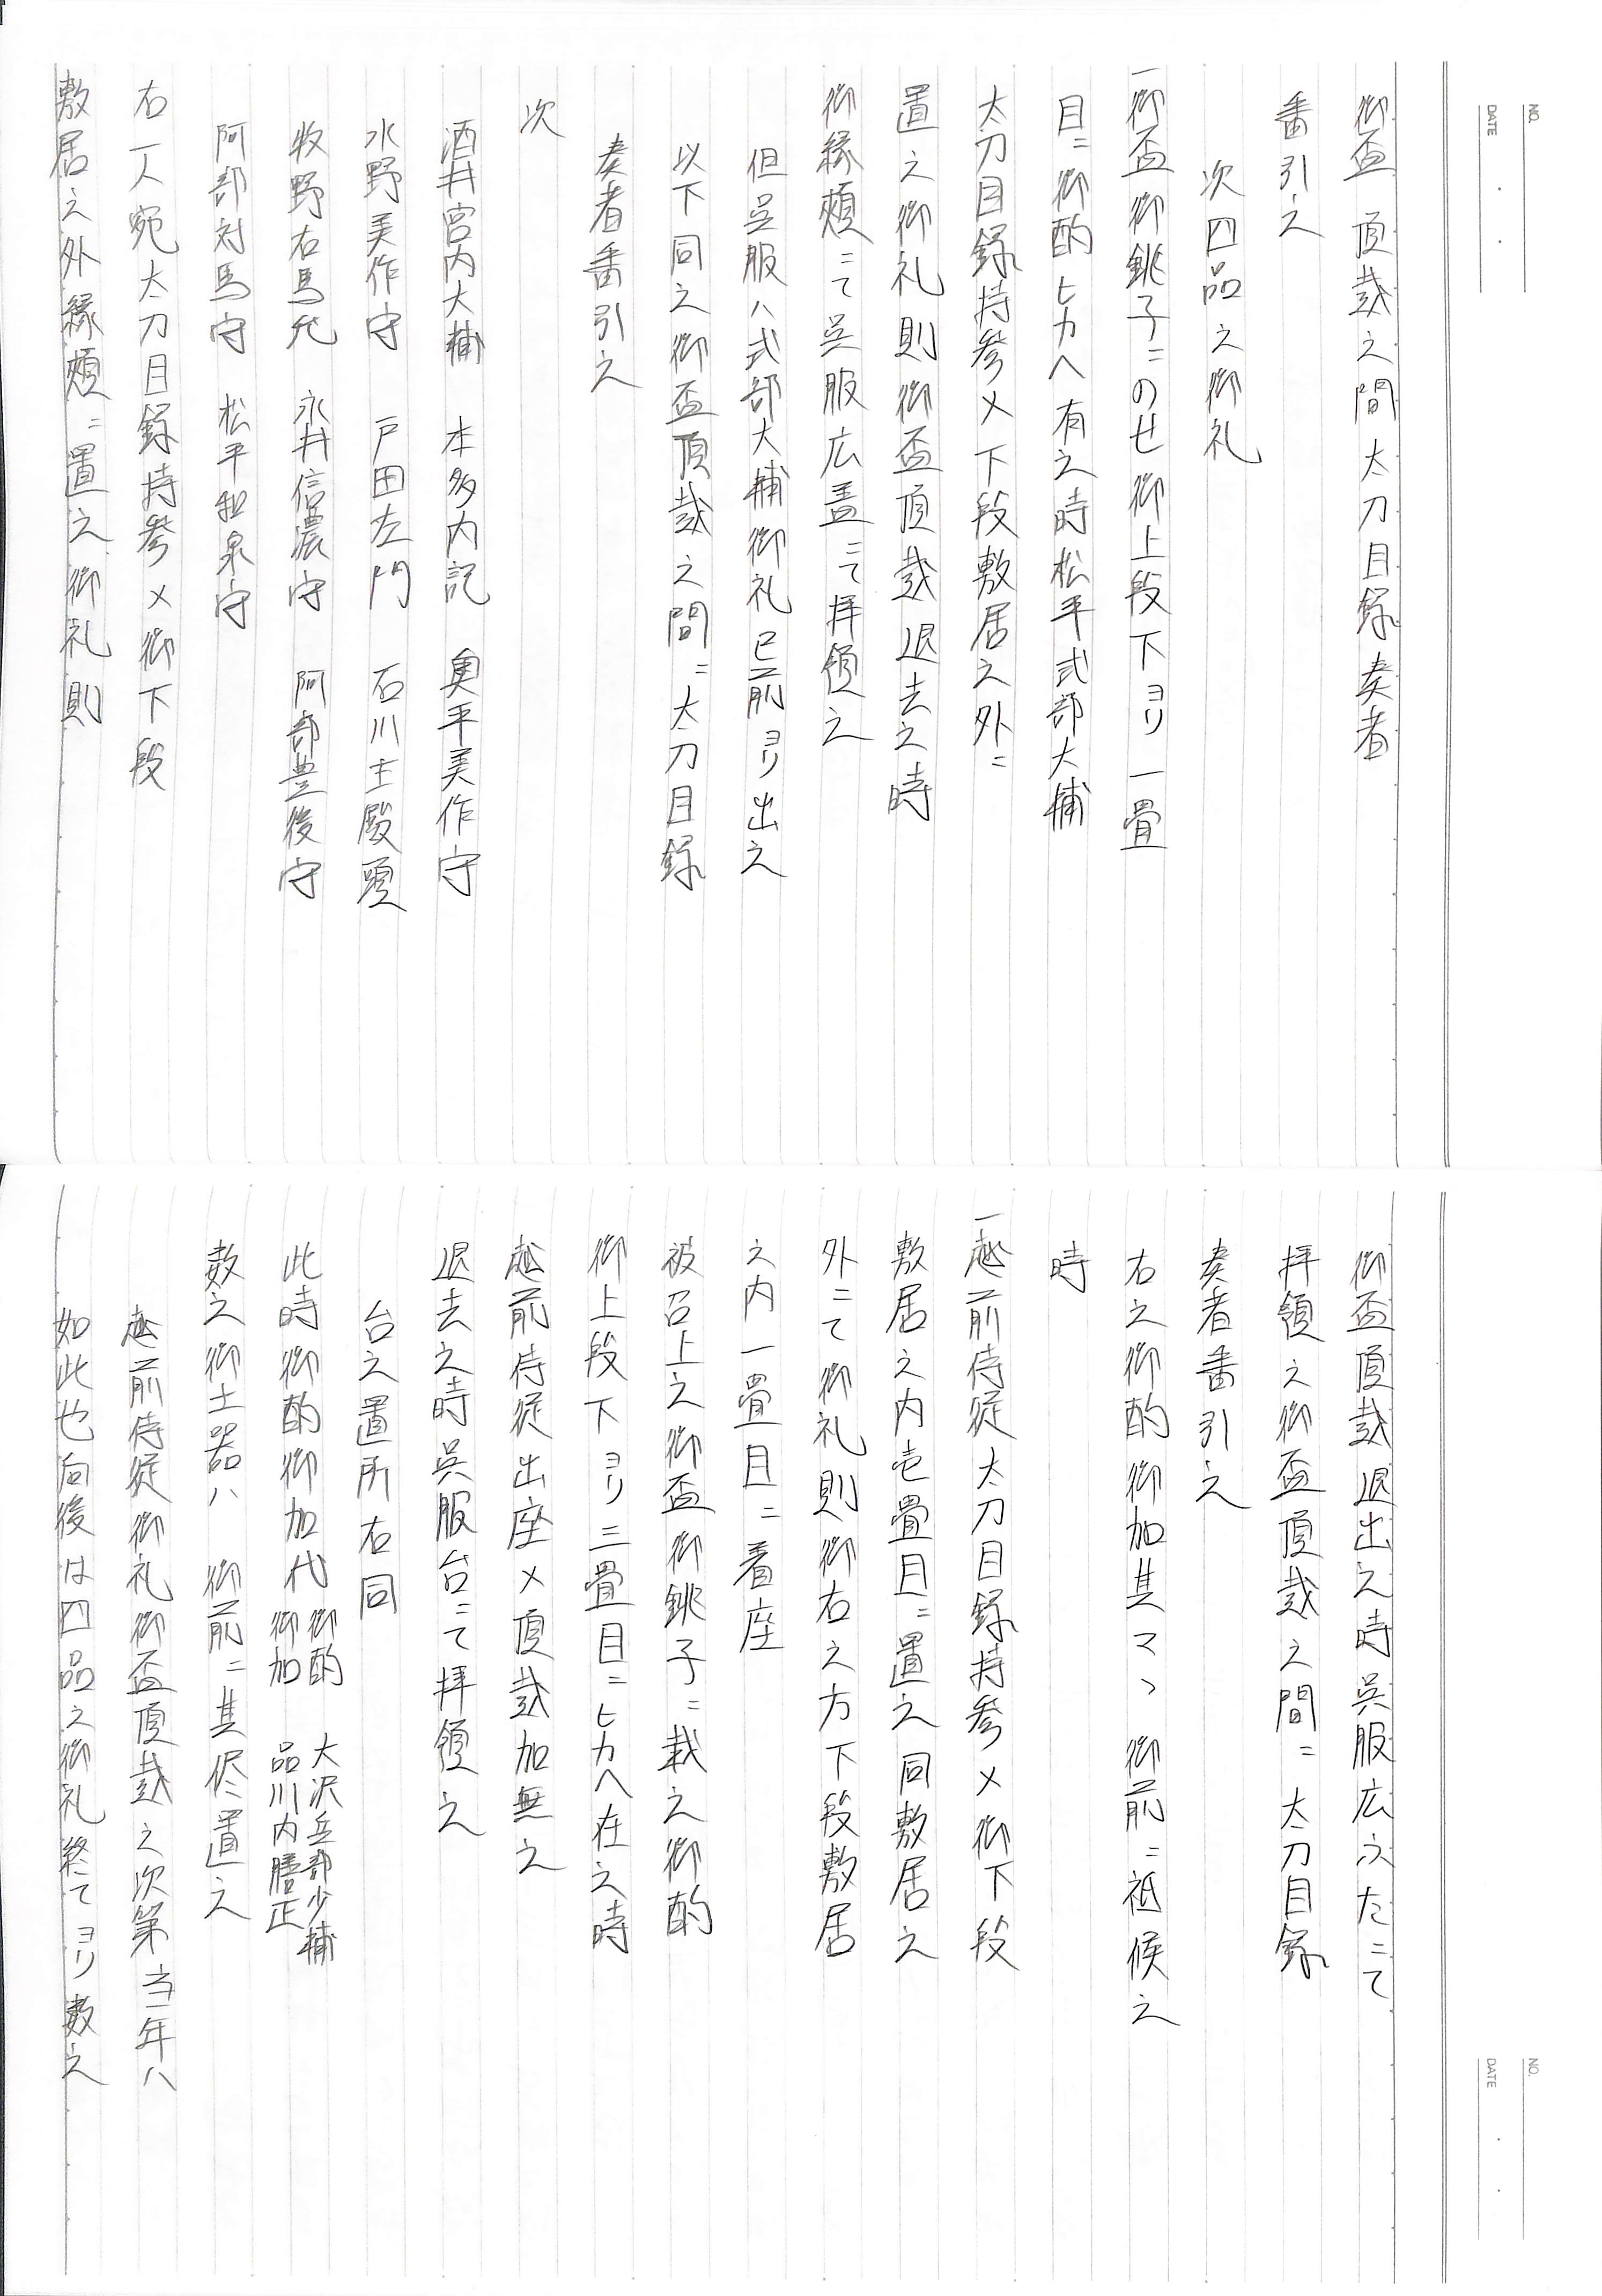 NO.
DATE
御盃 頂戴之間太刀目録奏者
番引之
次四品之御礼
一御盃御銚子ニのせ御上段下ヨリ一畳
目ニ御酌ヒカヘ有之時松平式部大輔
太刀目録持参〆下段敷居之外ニ
置之御礼則御盃頂戴退去之時
御縁頬ニて呉服広蓋ニて拝領之
但呉服ハ式部大輔御礼已前ヨリ出之
以下同之御盃頂戴之間ニ太刀目録
奏者番引之
次
酒井宮内大輔 本多内記 奥平美作守
水野美作守 戸田左門 石川主殿頭
牧野右馬允 永井信濃守 阿部豊後守
阿部対馬守 松平和泉守
右一人宛太刀目録持参〆御下段
敷居之外縁頬ニ置之御礼則
NO.
DATE
御盃頂戴退出之時呉服広ふたニて
拝領之御盃頂戴之間ニ太刀目録
奏者番引之
右之御酌御加其マヽ 御前ニ祗候之
時
一越前侍従太刀目録持参〆御下段
敷居之内壱畳目ニ置之同敷居之
外ニて御礼則御右之方下段敷居
之内一畳目ニ着座
被召上之御盃御銚子ニ栽之御酌
御上段下ヨリ三畳目ニヒカヘ在之時
越前侍従出座〆頂戴加無之
退去之時呉服台ニて拝領之
台之置所右同
此時御酌御加代 御酌 大沢兵部少輔
御加 品川内膳正
数之御土器ハ 御前ニ其侭置之
越前侍従御礼御盃頂戴之次第当年ハ
如此也向後は四品之御礼終てヨリ数之